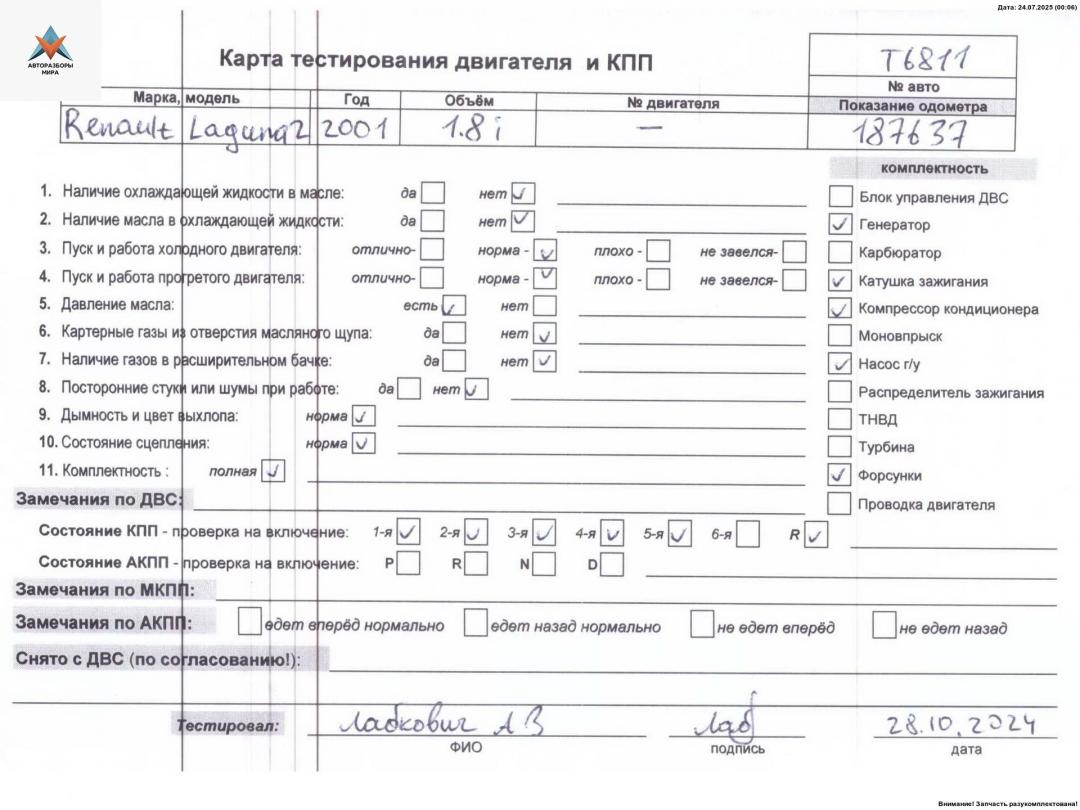 Дата: 24.07.2025 (00:06)
АВТОРАЗБОРЫ
МИРА
Карта тестирования двигателя и КПП
Т6811
№ авто
Марка, модель Год Объём № двигателя Показание одометра
Renault Laguna2 2001 1.8 i — 187637
комплектность
1. Наличие охлаждающей жидкости в масле: да нет ✓
2. Наличие масла в охлаждающей жидкости: да нет ✓
3. Пуск и работа холодного двигателя: отлично- норма - ✓ плохо - не завелся-
4. Пуск и работа прогретого двигателя: отлично- норма - ✓ плохо - не завелся-
5. Давление масла: есть ✓ нет
6. Картерные газы из отверстия масляного щупа: да нет ✓
7. Наличие газов в расширительном бачке: да нет ✓
8. Посторонние стуки или шумы при работе: да нет ✓
9. Дымность и цвет выхлопа: норма ✓
10. Состояние сцепления: норма ✓
11. Комплектность : полная ✓
Блок управления ДВС
✓ Генератор
Карбюратор
✓ Катушка зажигания
✓ Компрессор кондиционера
Моновпрыск
✓ Насос г/у
Распределитель зажигания
ТНВД
Турбина
✓ Форсунки
Проводка двигателя
Замечания по ДВС:
Состояние КПП - проверка на включение: 1-я ✓ 2-я ✓ 3-я ✓ 4-я ✓ 5-я ✓ 6-я R ✓
Состояние АКПП - проверка на включение: P R N D
Замечания по МКПП:
Замечания по АКПП: едет вперёд нормально едет назад нормально не едет вперёд не едет назад
Снято с ДВС (по согласованию!):
Тестировал: Лабкович А В Лаб 28.10.2024
ФИО подпись дата
Внимание! Запчасть разукомплектована!